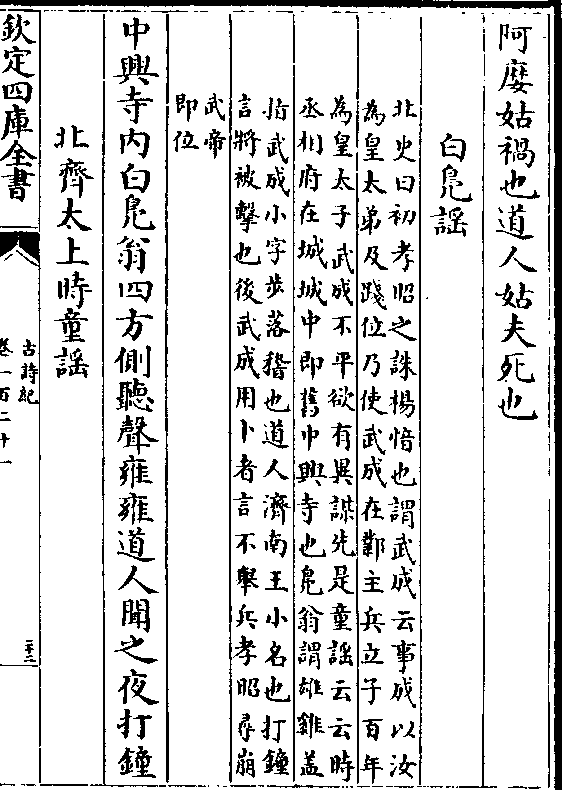 阿麽姑禍也道人姑夫死也
白鳬謡
北史曰初孝昭之誅楊愔也謂武成云事成以汝
為皇太弟及踐位乃使武成在鄴主兵立子百年
為皇太子武成不平欲有異謀先是童謡云云時
丞相府在城城中即舊中興寺也鳬翁謂雄雞盖
指武成小字步落稽也道人濟南王小名也打鐘
言將被擊也後武成用卜者言不舉兵孝昭尋崩
武帝
即位
中興寺内白鳬翁四方側聽聲雍雍道人聞之夜打鐘
北齊太上時童謡
欽定四庫全書
古詩紀
卷一百二十一